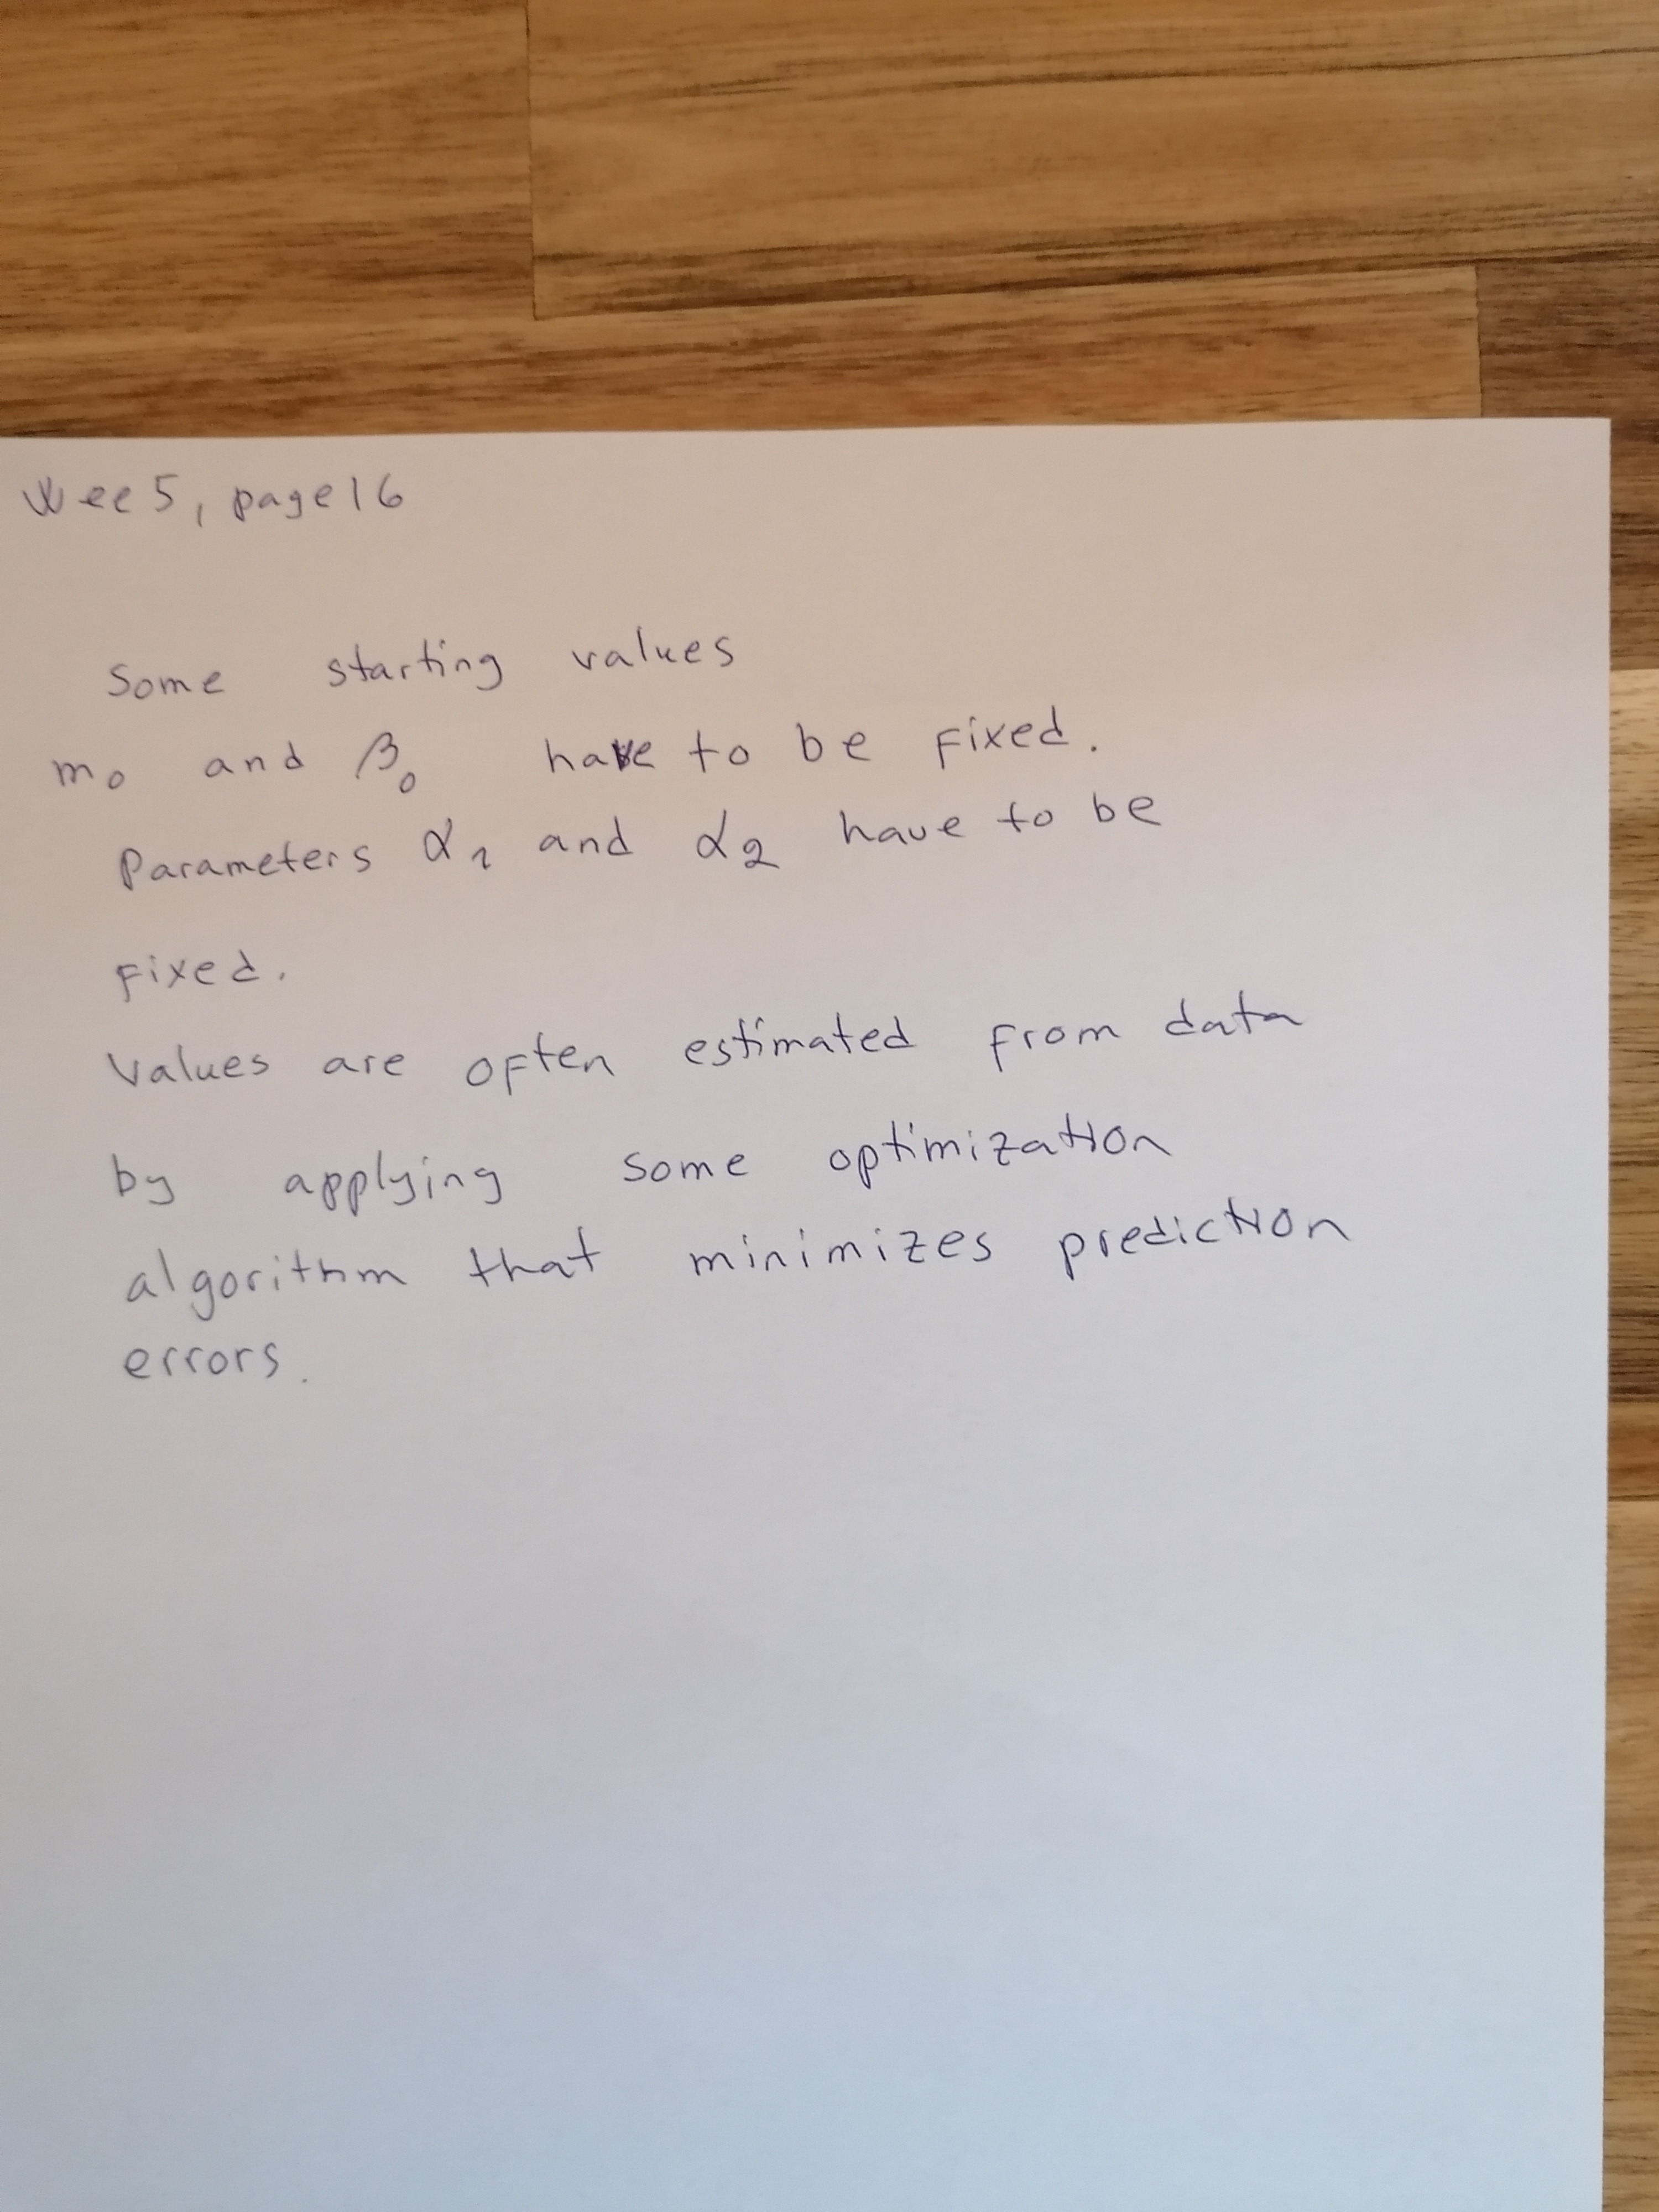 Wee 5, page 16
Some starting values
m₀ and β₀ have to be fixed.
Parameters α₁ and α₂ have to be
fixed.
Values are often estimated from data
by applying some optimization
algorithm that minimizes prediction
errors.